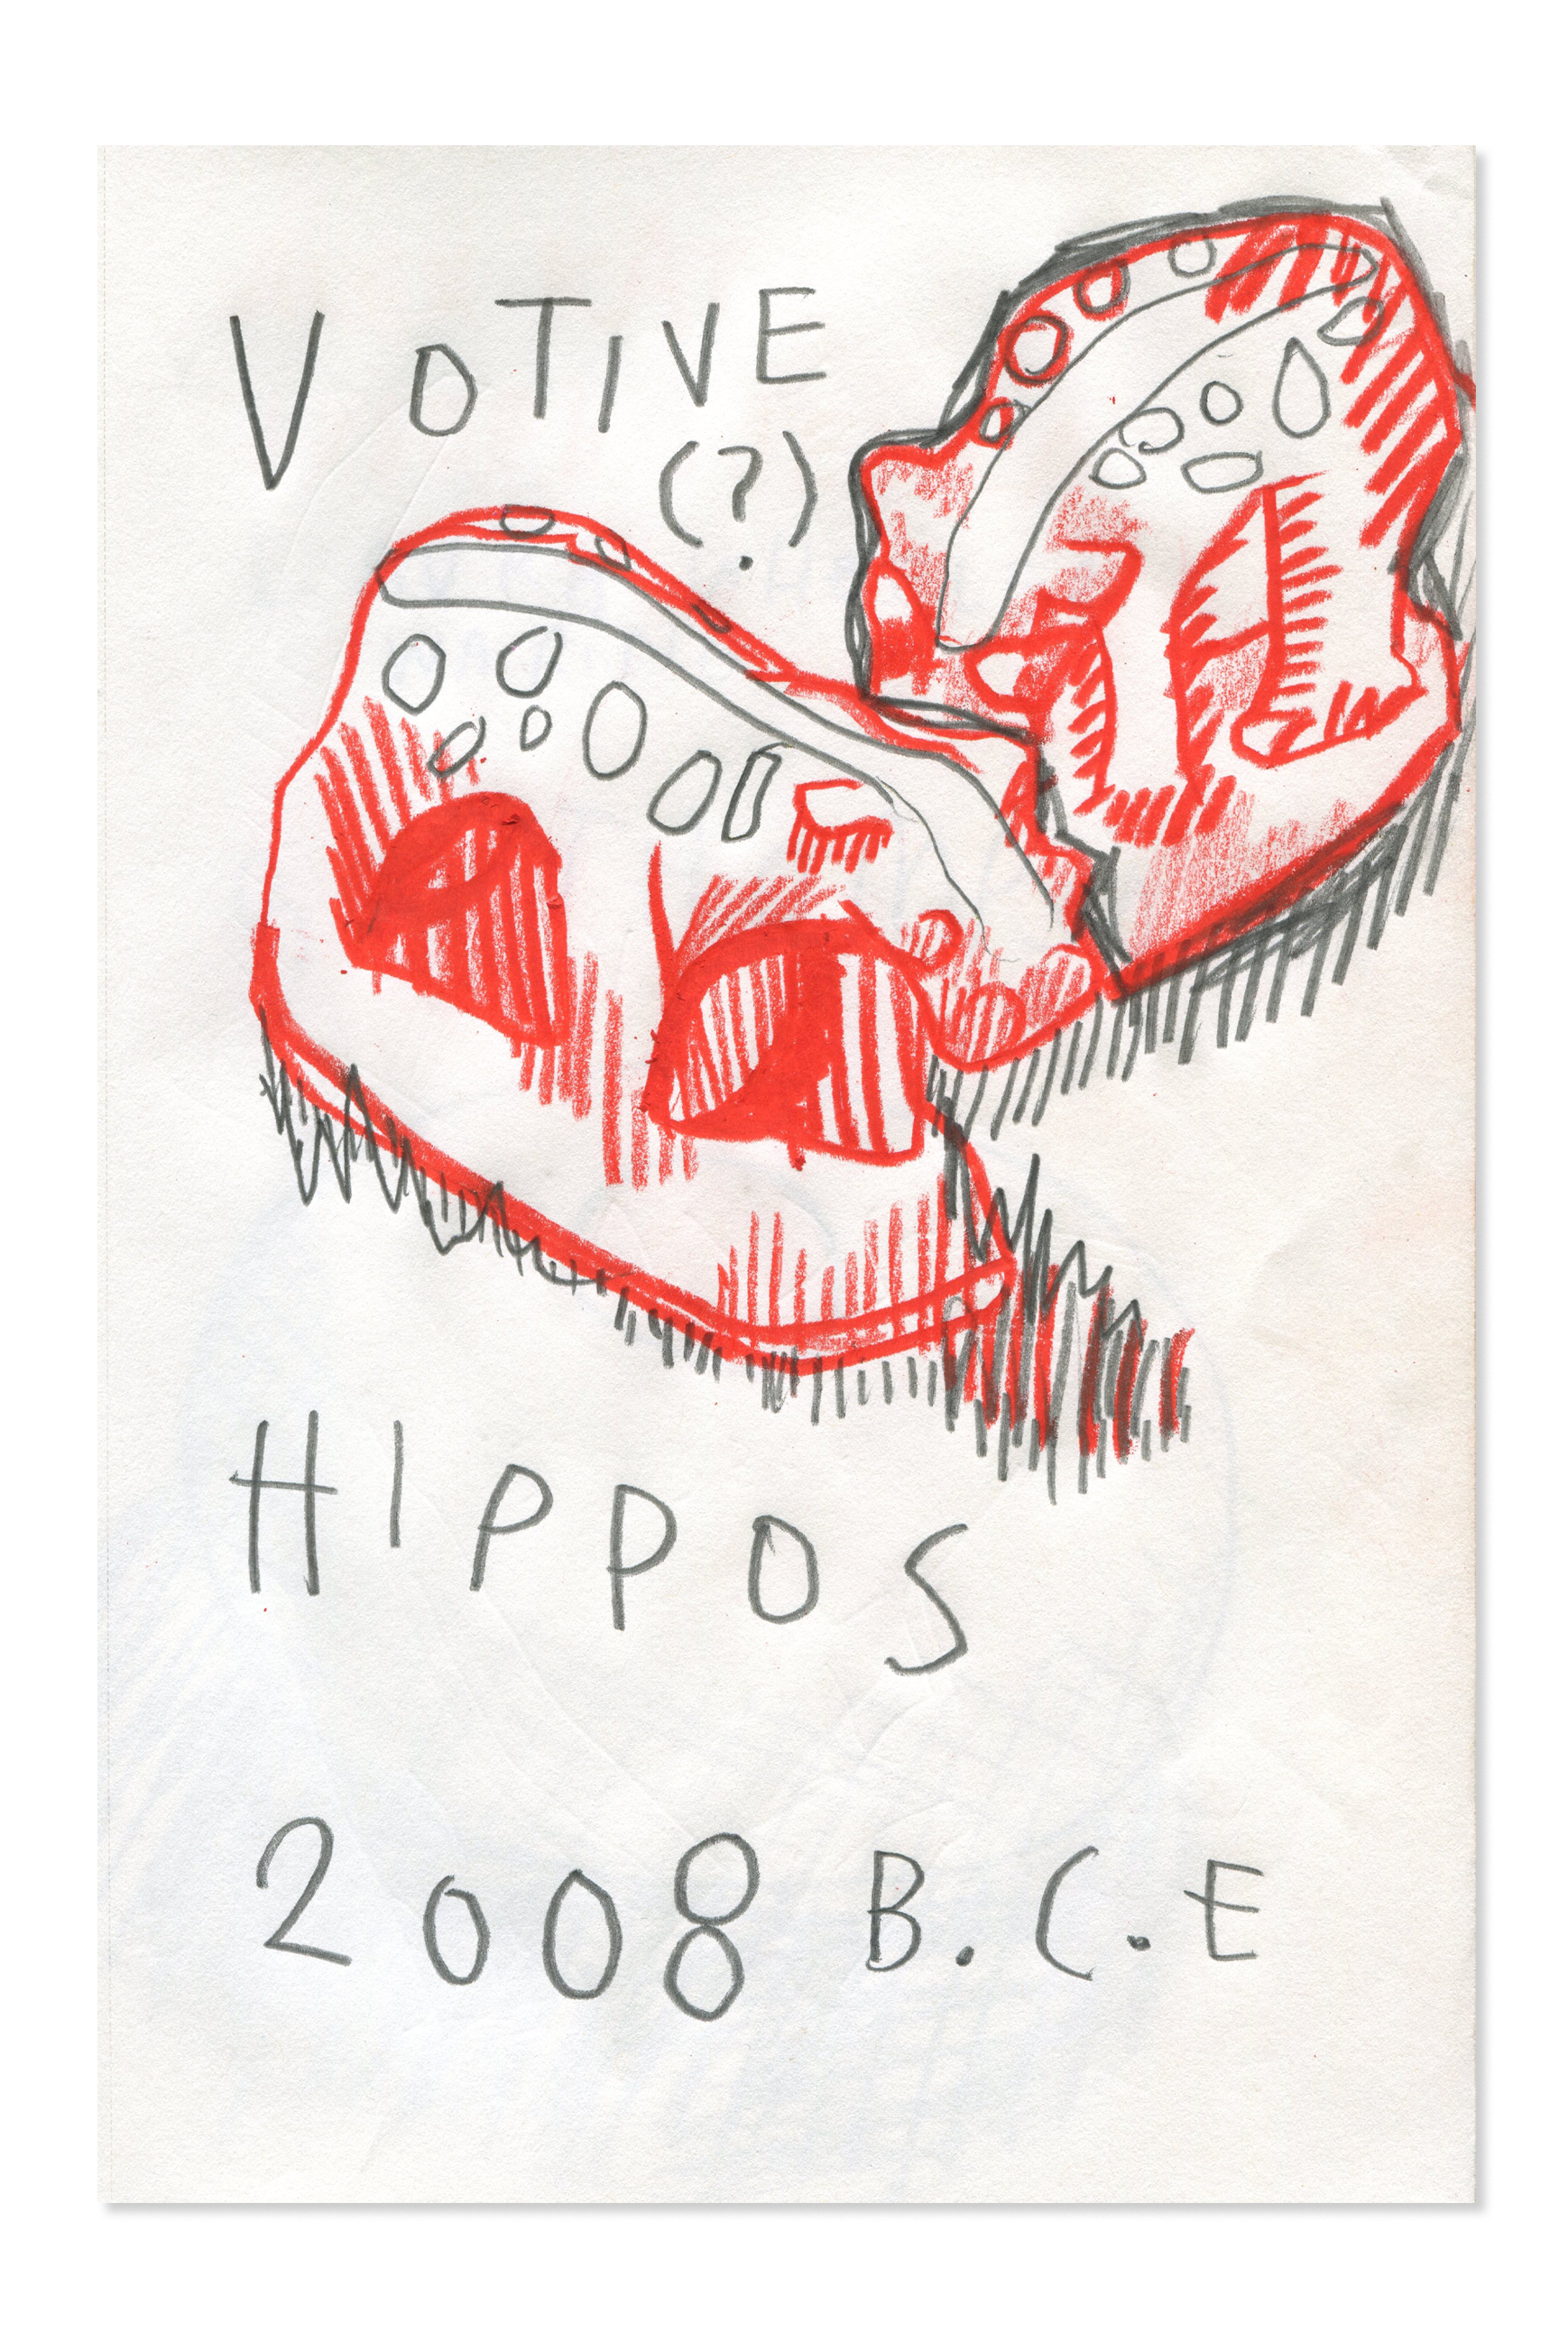 VOTIVE
(?)
HIPPOS
2008 B.C.E